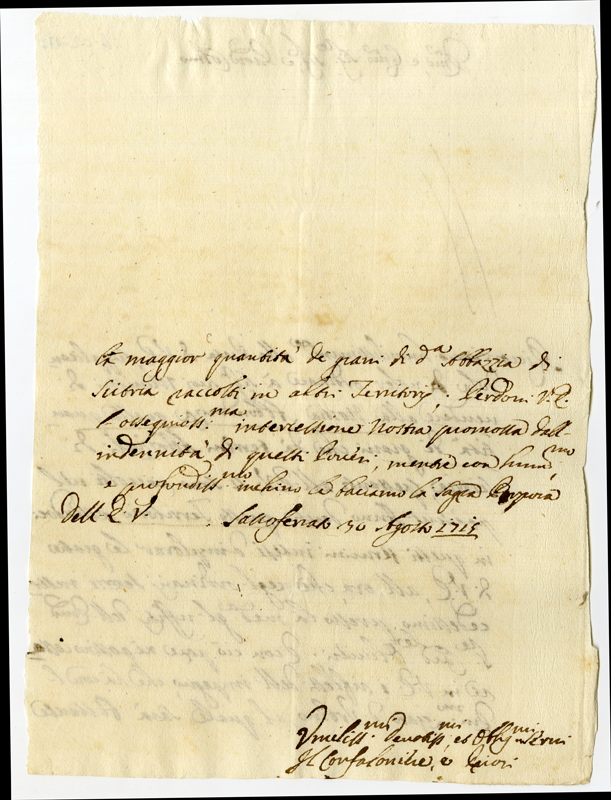 la maggior quantità de grani di d.a Abbazzia di
Sitria raccolti in altri Territorij. Perdoni V. E.
l'ossequioss.ma intercessione Nostra promossa dall'
indennità di questi Poveri, mentre con humil.mo
e profondiss.mo inchino le baciamo la Sagra Porpora
Dell' E. V. Sassoferrato 30 Agosto 1715
Umiliss.mi Devotiss.mi et Obblig.mi Servi
Il Confaloniere, e Priori